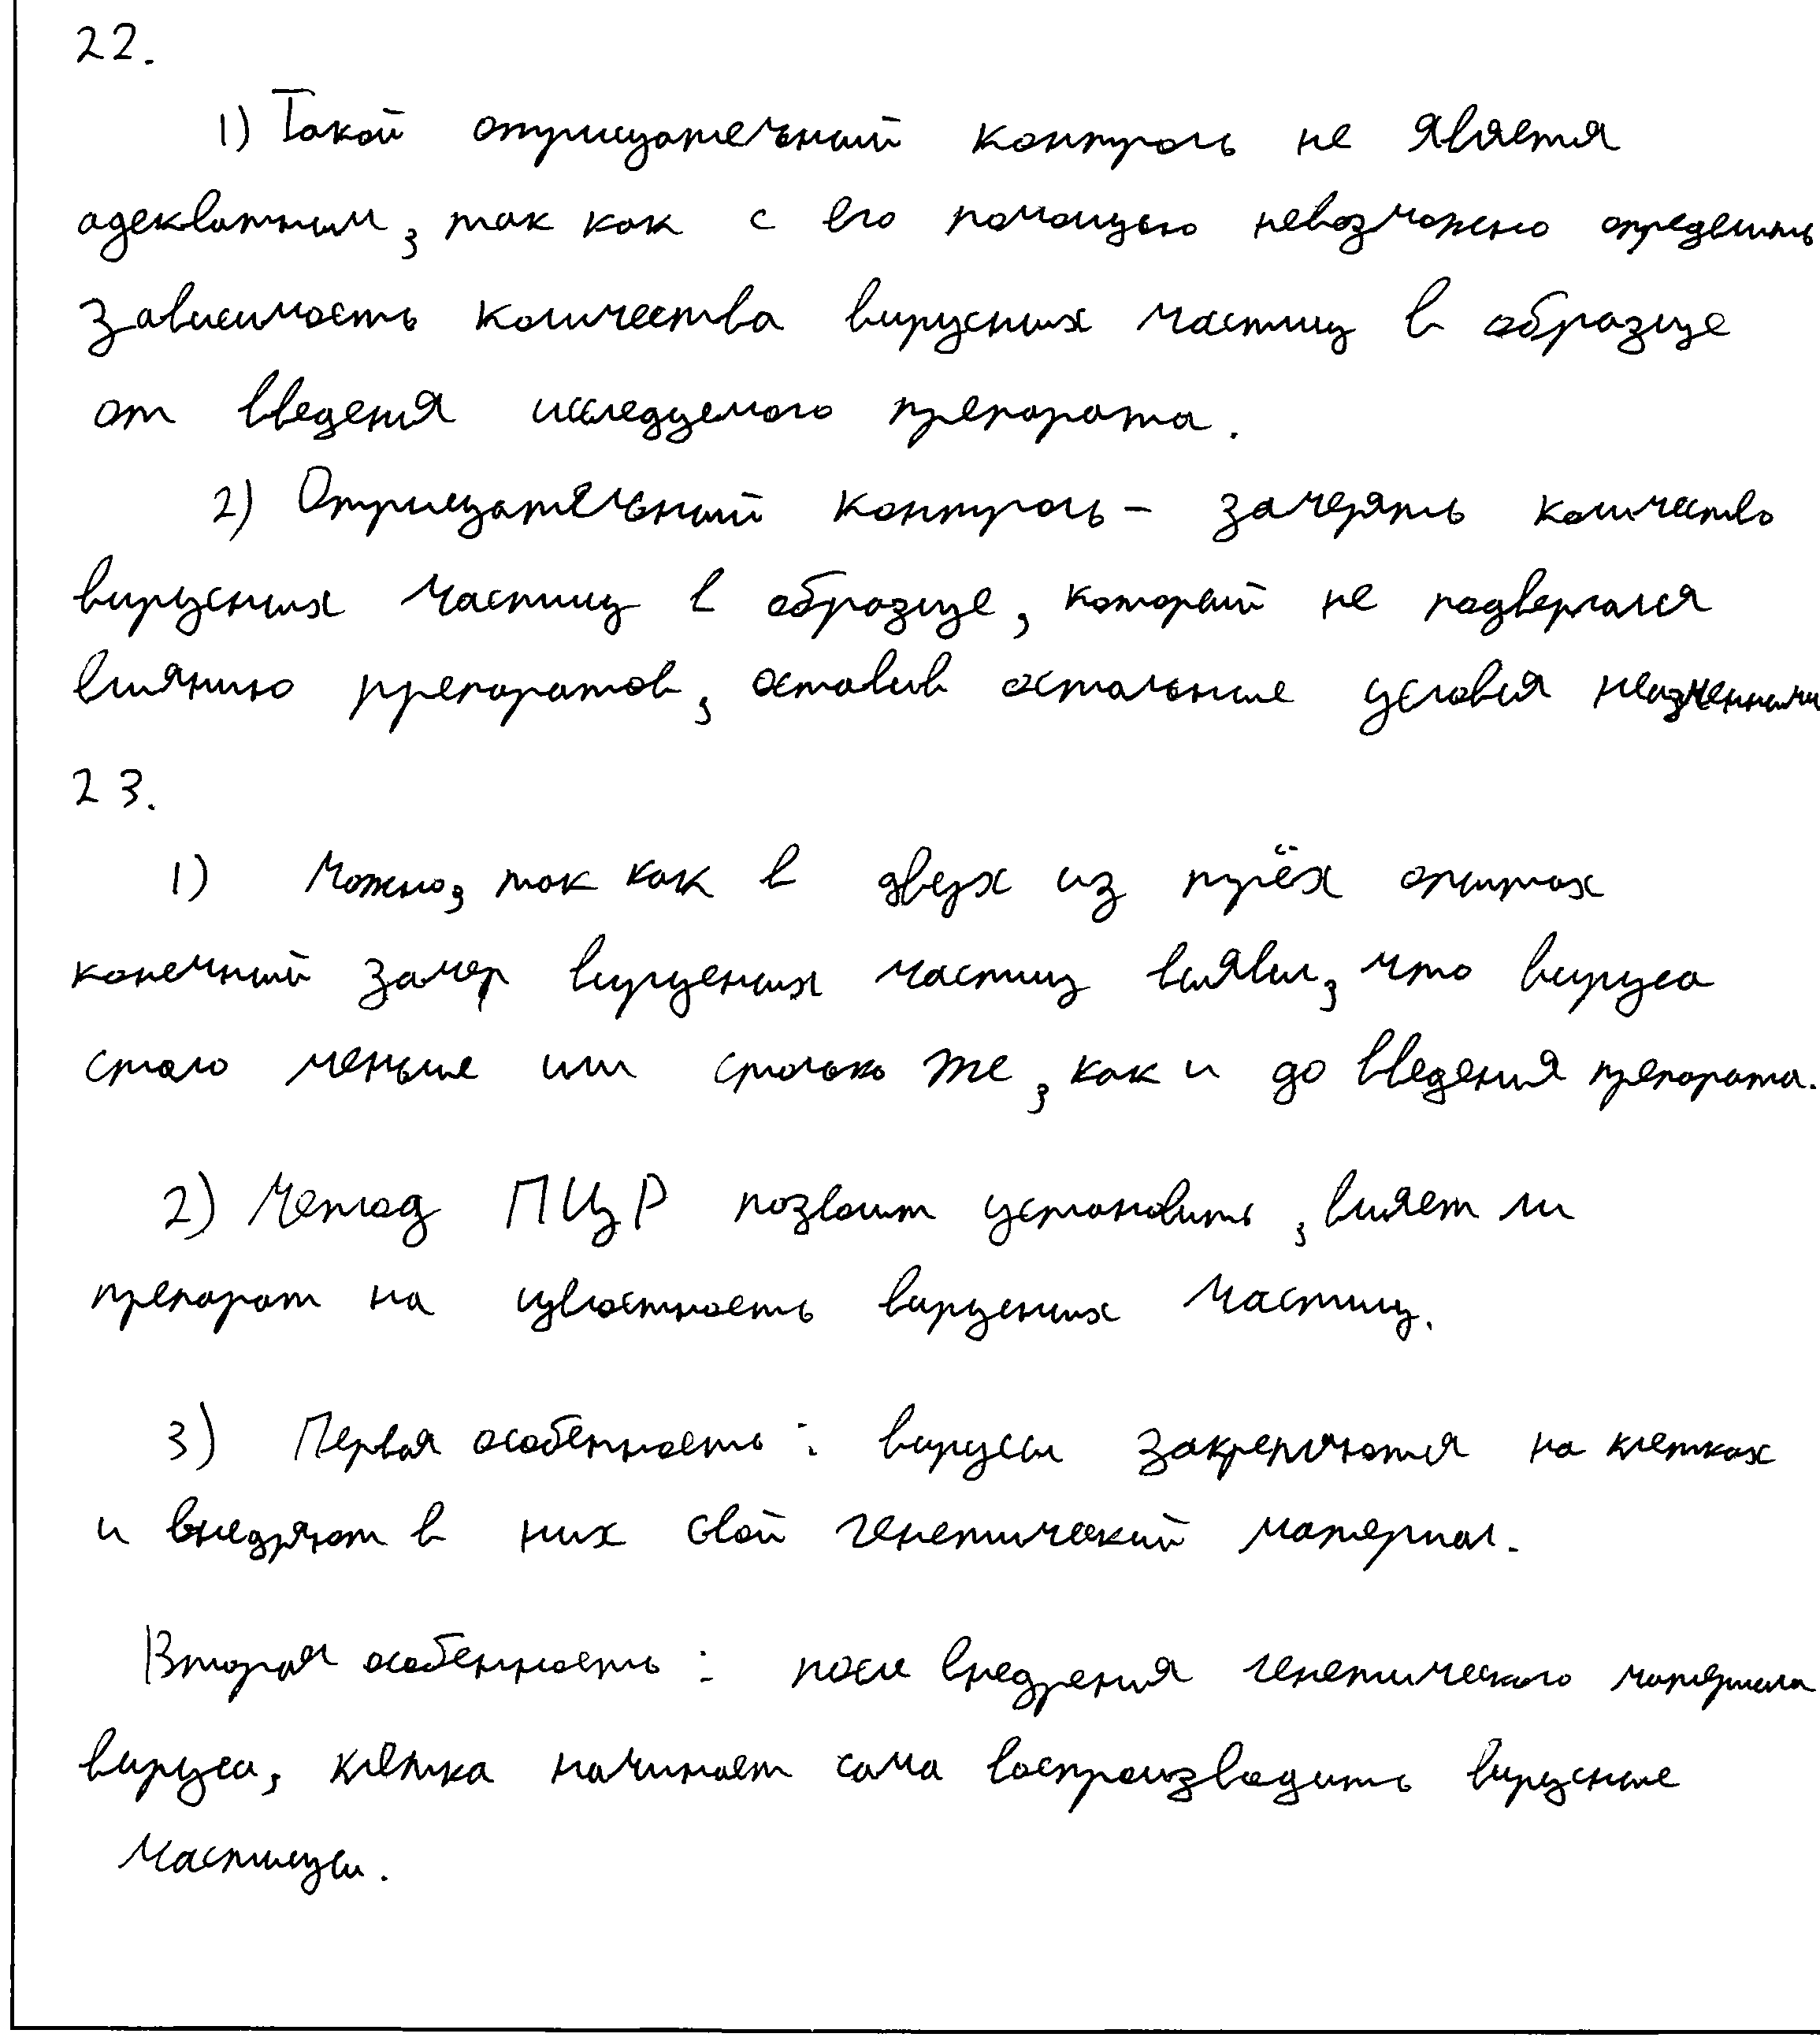 22.
1) Такой отрицательный контроль не является
адекватным, так как с его помощью невозможно определить
зависимость количества вирусных частиц в образце
от введения исследуемого препарата.
2) Отрицательный контроль – замерять количество
вирусных частиц в образце, который не подвергался
влиянию препаратов, оставив остальные условия неизменными
23.
1) Можно, так как в двух из трёх опытах
конечный замер вирусных частиц выявил, что вируса
стало меньше или столько же, как и до введения препарата.
2) Метод ПЦР позволит установить, влияет ли
препарат на целостность вирусных частиц.
3) Первая особенность: вирусы закрепляются на клетках
и внедряют в них свой генетический материал.
Вторая особенность: после внедрения генетического материала
вируса, клетка начинает сама воспроизводить вирусные
частицы.